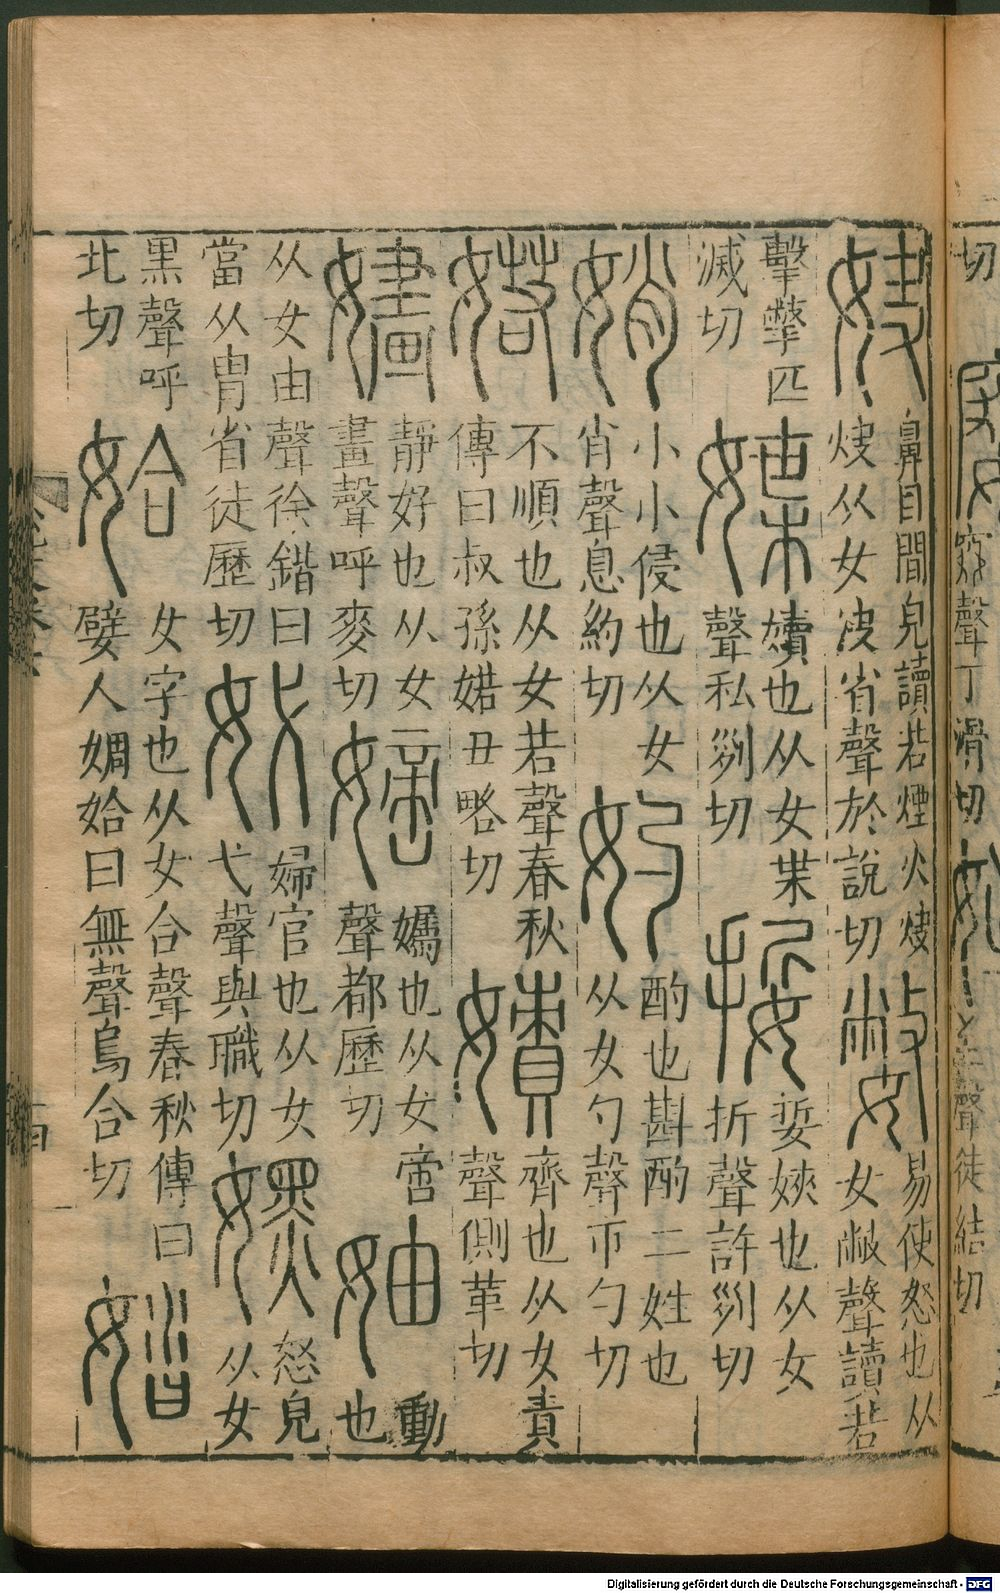 切 窡 聲丁滑切
至聲徒結切
妜 鼻目間皃讀若煙火炔
炔从女決省聲於說切
嫳 易使怒也从
女敝聲讀若
擊撆匹
滅切
媟 嬻也从女枼
聲私列切
娎 娎㛍也从女
折聲許列切
娋 小小侵也从女
肖聲息約切
妁 酌也斟酌二姓也
从女勺聲市勺切
婼 不順也从女若聲春秋
傳曰叔孫婼丑略切
嫧 齊也从女責
聲側革切
嫿 靜好也从女
畫聲呼麥切
嫡 孎也从女啻
聲都歷切
妯 動
也
从女由聲徐鍇曰
當从胄省徒歷切
妷 婦官也从女
弋聲與職切
嬺 怒皃
从女
黑聲呼
北切
姶 女字也从女合聲春秋傳曰
嬖人婤姶曰無聲烏合切
㛥
Digitalisierung gefördert durch die Deutsche Forschungsgemeinschaft - DFG